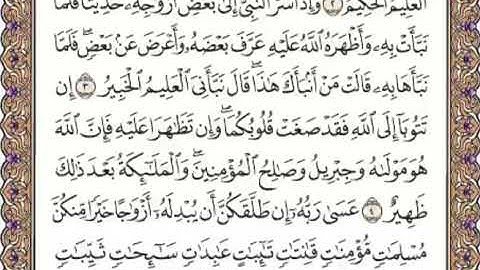 ٱلْعَلِيمُ ٱلْحَكِيمُ ٢ وَإِذْ أَسَرَّ ٱلنَّبِىُّ إِلَىٰ بَعْضِ أَزْوَٰجِهِۦ حَدِيثًا فَلَمَّا
نَبَّأَتْ بِهِۦ وَأَظْهَرَهُ ٱللَّهُ عَلَيْهِ عَرَّفَ بَعْضَهُۥ وَأَعْرَضَ عَنۢ بَعْضٍۖ فَلَمَّا
نَبَّأَهَا بِهِۦ قَالَتْ مَنْ أَنۢبَأَكَ هَٰذَاۖ قَالَ نَبَّأَنِىَ ٱلْعَلِيمُ ٱلْخَبِيرُ ٣ إِن
تَتُوبَآ إِلَى ٱللَّهِ فَقَدْ صَغَتْ قُلُوبُكُمَاۖ وَإِن تَظَٰهَرَا عَلَيْهِ فَإِنَّ ٱللَّهَ
هُوَ مَوْلَىٰهُ وَجِبْرِيلُ وَصَٰلِحُ ٱلْمُؤْمِنِينَۖ وَٱلْمَلَٰٓئِكَةُ بَعْدَ ذَٰلِكَ
ظَهِيرٌ ٤ عَسَىٰ رَبُّهُۥٓ إِن طَلَّقَكُنَّ أَن يُبْدِلَهُۥٓ أَزْوَٰجًا خَيْرًا مِّنكُنَّ
مُسْلِمَٰتٍ مُّؤْمِنَٰتٍ قَٰنِتَٰتٍ تَٰٓئِبَٰتٍ عَٰبِدَٰتٍ سَٰٓئِحَٰتٍ ثَيِّبَٰتٍ